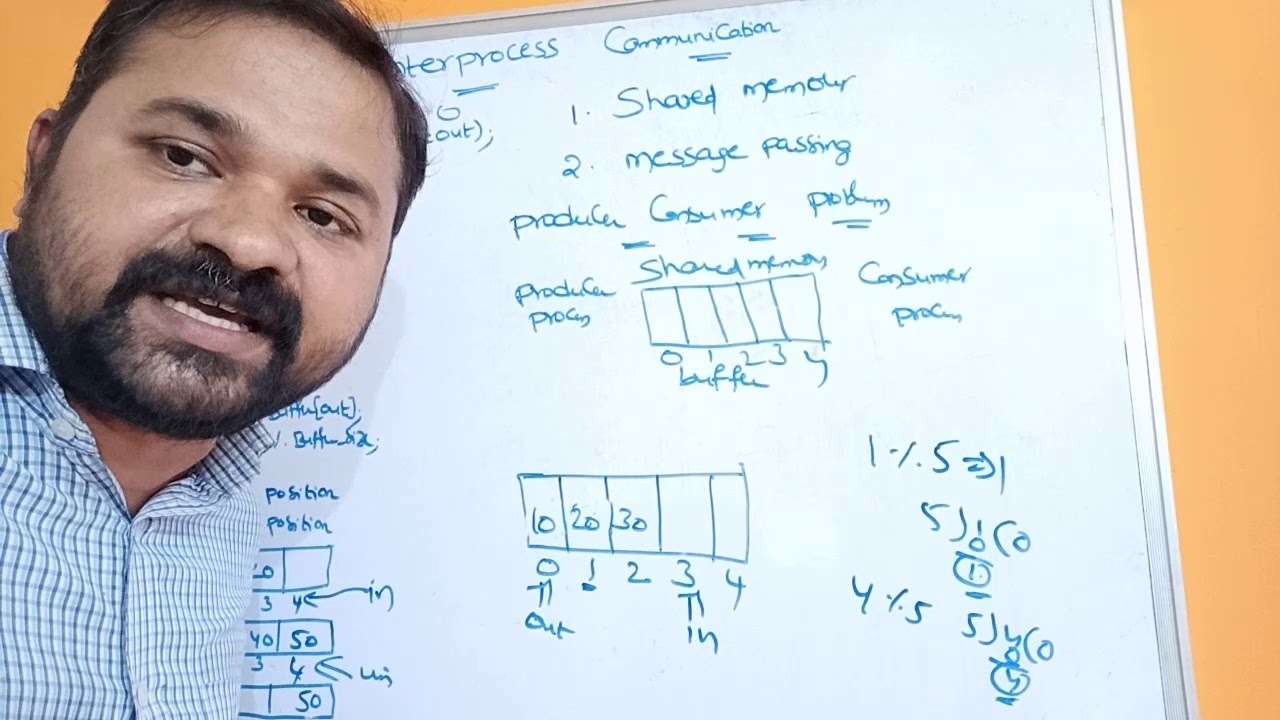 nterprocess Communication
0
out);
1. Shared memory
2. message passing
producer Consumer problem
Shared memory
producer process
Consumer process
0 1 2 3 4
buffer
Buffer[out];
%. Buffer_size;
position
position
3 4 in
40 50
3 4
50
10 20 30
0 1 2 3 4
out in
1 % 5 => 1
5) 1 (0
0
1
4 % 5 5) 4 (0
0
4